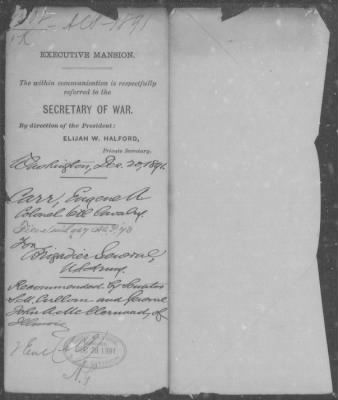 1891
EXECUTIVE MANSION.
The within communication is respectfully
referred to the
SECRETARY OF WAR.
By direction of the President:
ELIJAH W. HALFORD,
Private Secretary.
Washington, Dec. 20, 1891.
Carr, Eugene A
Colonel 6th Cavalry.
For
Brigadier General,
U.S. Army.
Recommended by Senator
S.M. Cullom and General
John A. McClernand, of
Illinois
1891